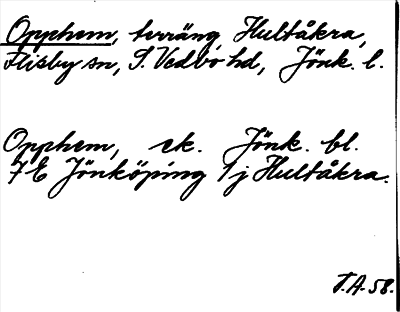 Opphem, terräng Hultåkra,
Flisby sn, S. Vedbo hd, Jönk. l.
Opphem, ek. Jönk. bl.
7E Jönköping 1j Hultåkra.
T.A. 58.